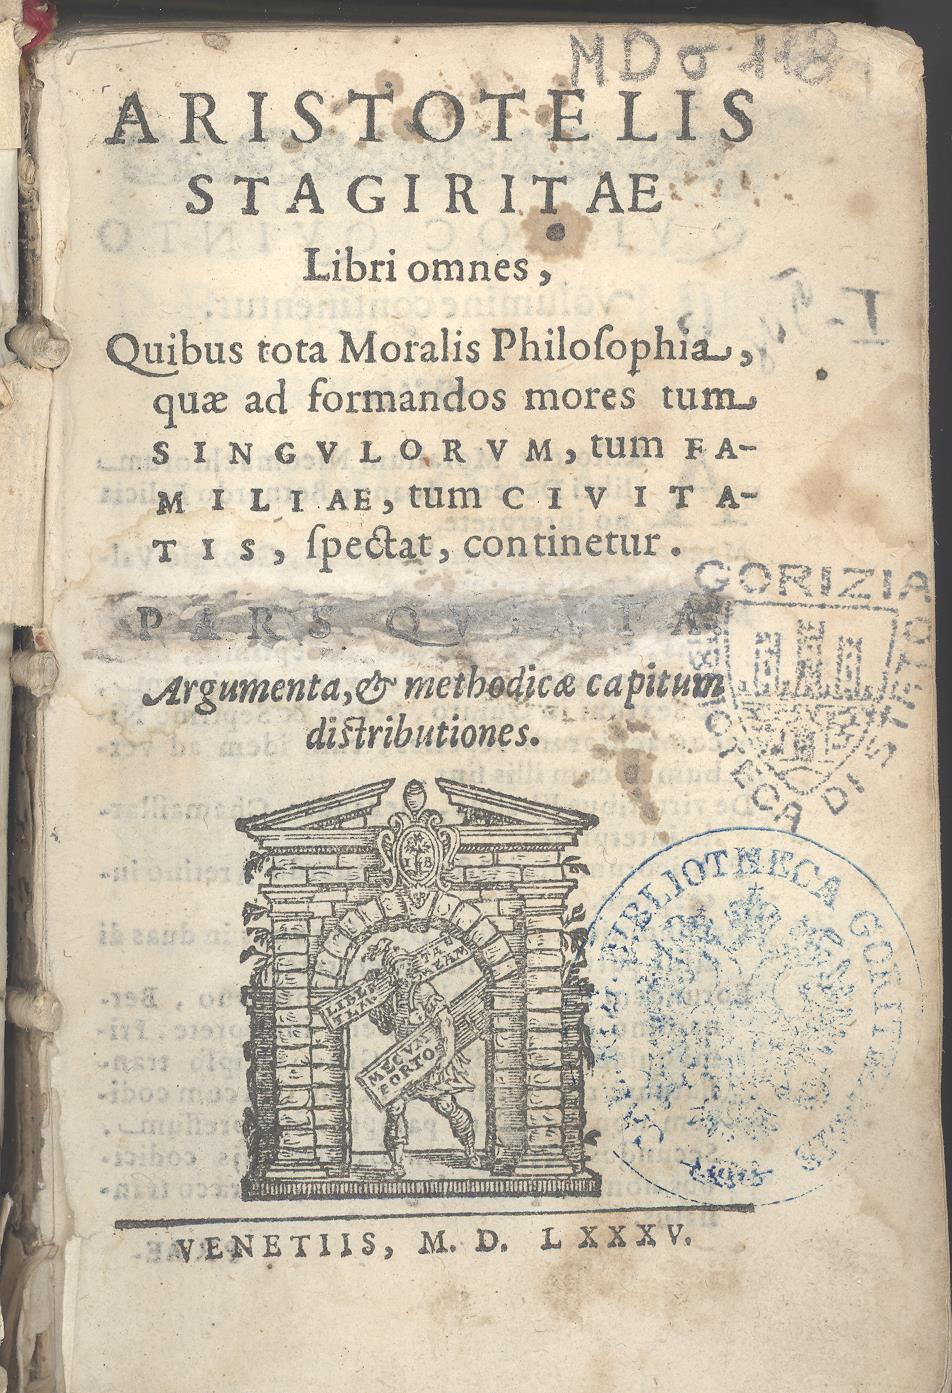 MDσ 118
ARISTOTELIS
STAGIRITAE
Libri omnes,
Quibus tota Moralis Philoſophia,
quæ ad formandos mores tum
SINGVLORVM, tum FA-
MILIAE, tum CIVITA-
TIS, ſpectat, continetur.
PARS QVINTA
Argumenta, & methodicæ capitum
diſtributiones.
LIBER TAT
MEAM
MECVM
PORTO
VENETIIS, M. D. LXXXV.
GORIZIA
BIBLIOTECA DI STATO
BIBLIOTHECA GORITIENSIS